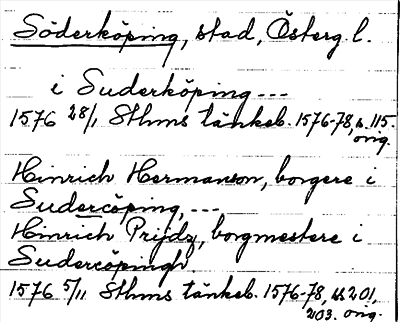 Söderköping, stad, Österg. l.
i Suderköping ---
1576 28/1 Sthms tänkeb. 1576-78, s. 115.
orig.
Hinrich Hermanson, borgere i
Sudercöping, ---
Hinrich Prijdz, borgmestere i
Sudercöpingh.
1576 5/11 Sthms tänkeb. 1576-78, ss 201,
203. orig.